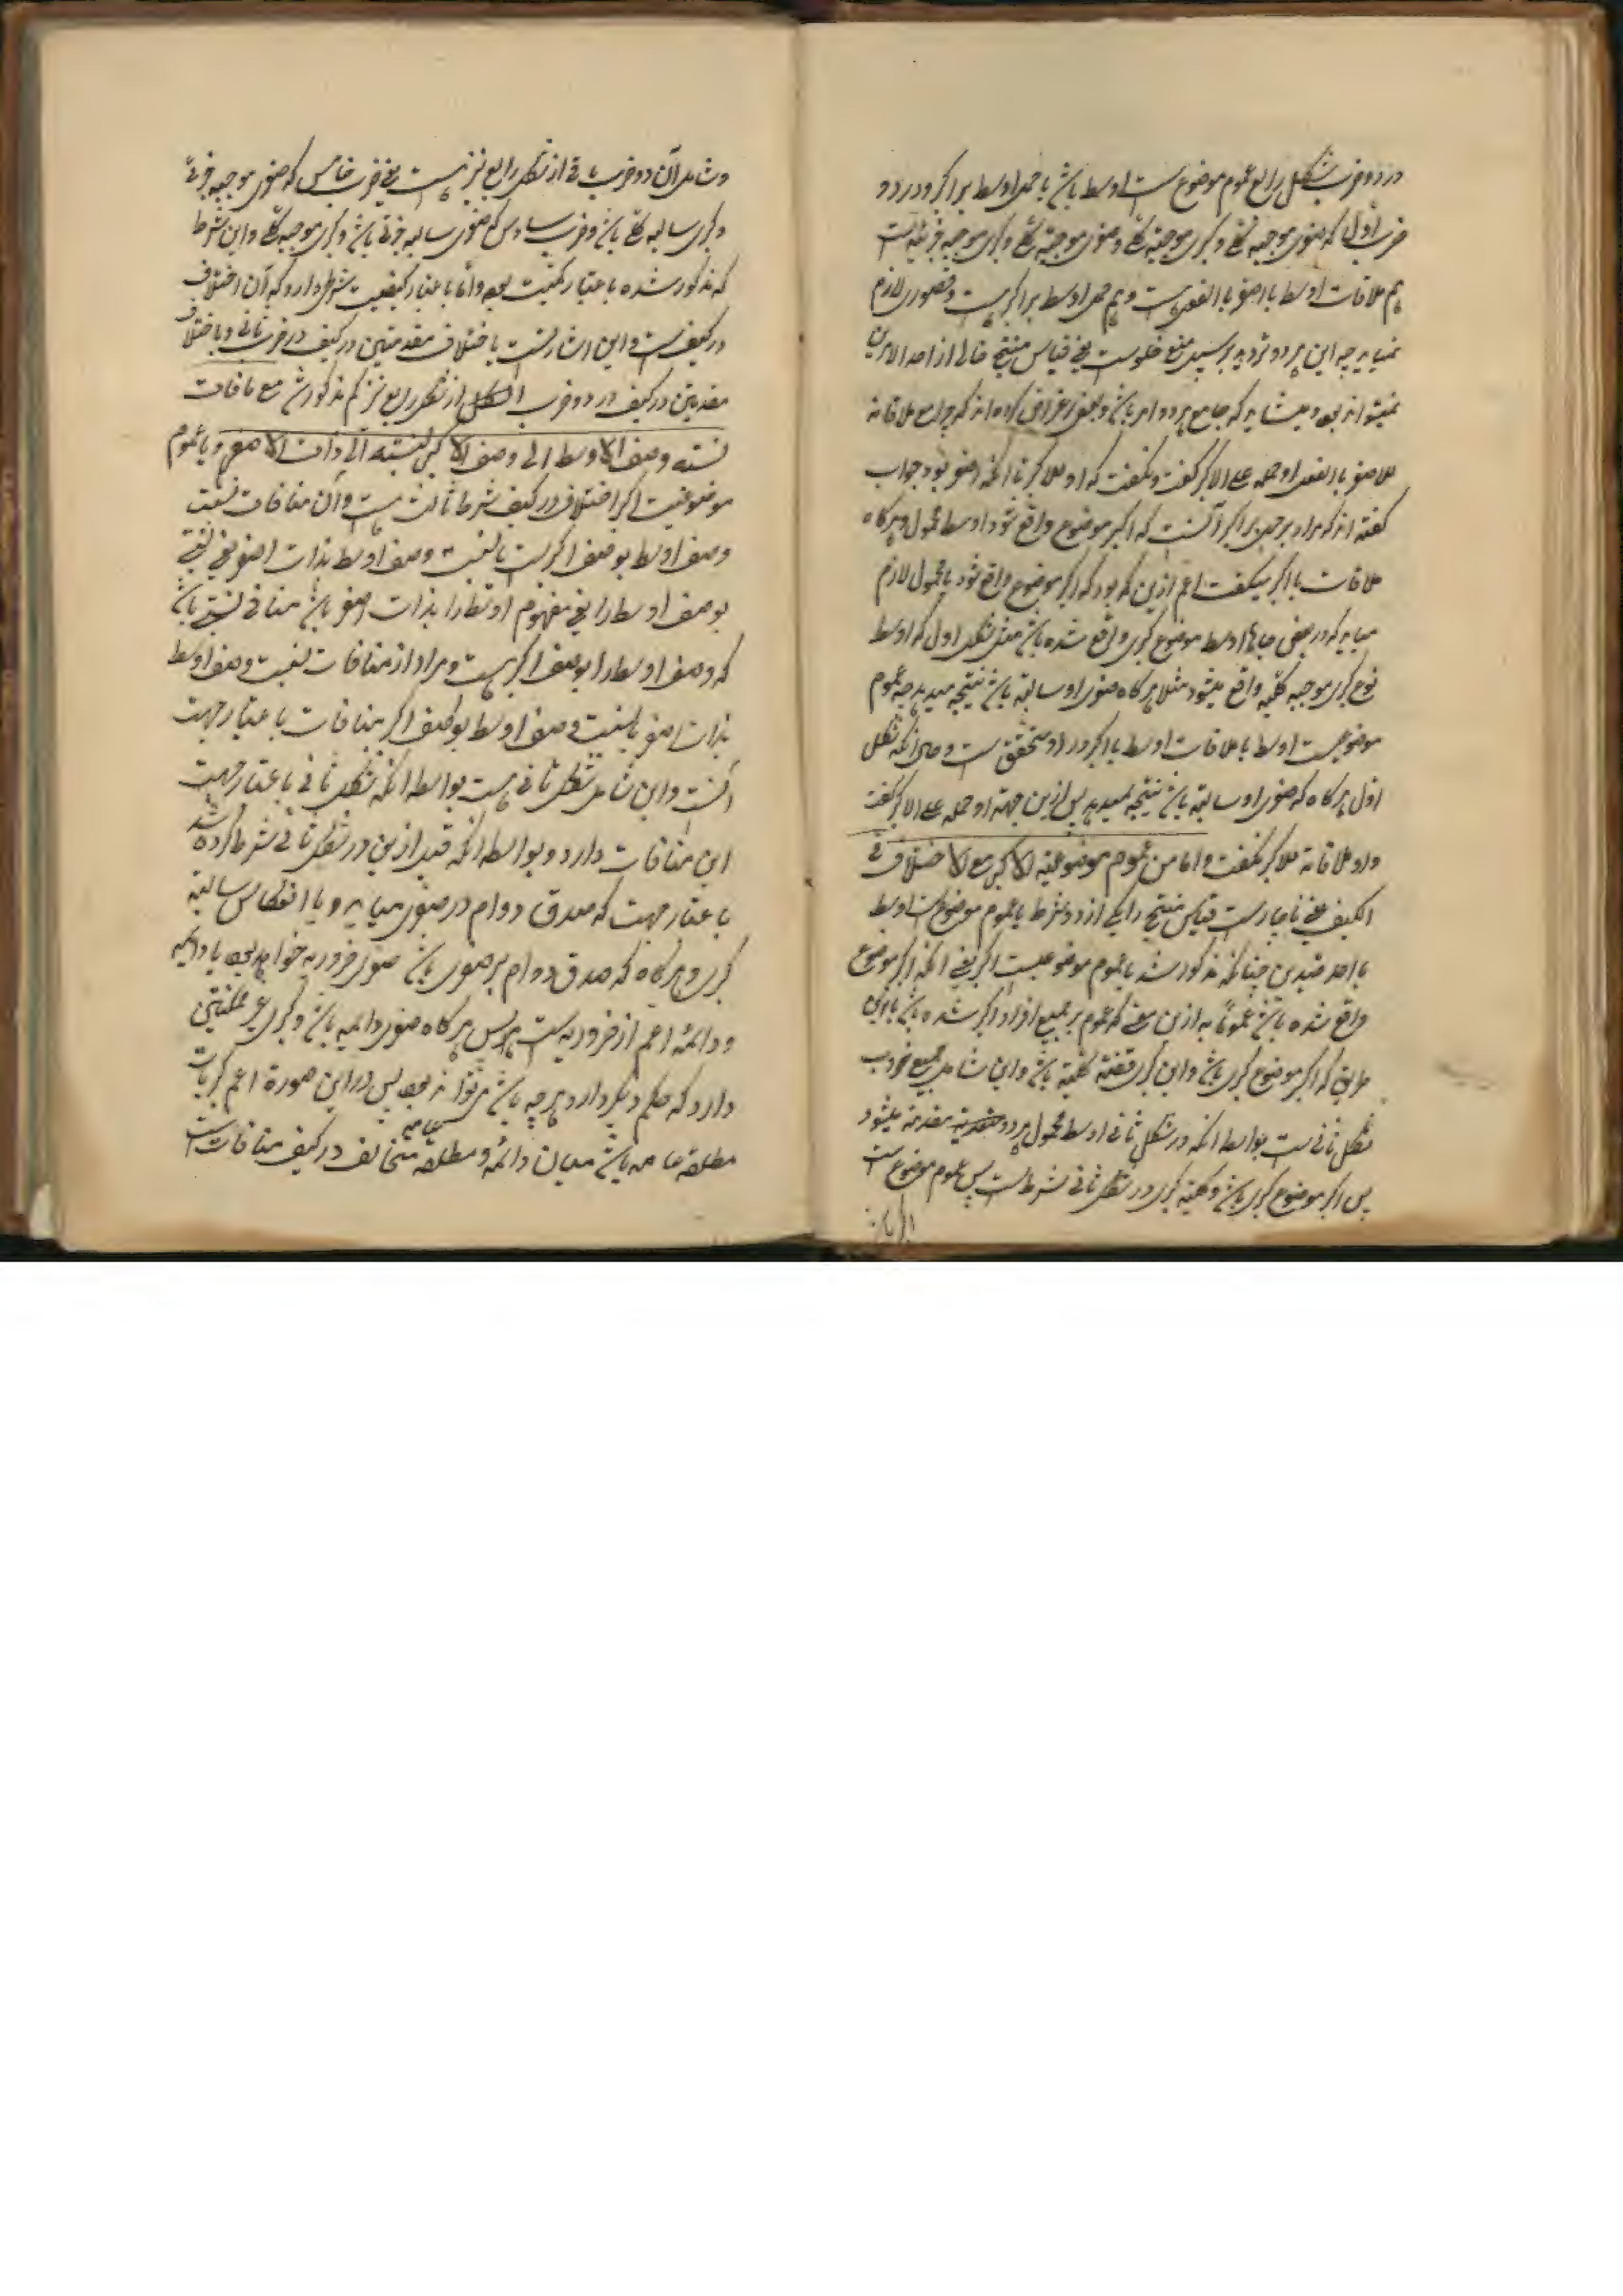 در دو ضرب شکل رابع عموم موضوعیت اوسط باشد با حمل اوسط بر اکبر و در دو
ضرب اول که صغری موجبه کلی و کبری موجبه کلی و صغری موجبه کلی و کبری موجبه جزئیه است
هم ملاقات اوسط با اصغر بالفعل است و هم حمل اوسط بر اکبر است و قصوری لازم
نمیاید چه این هر دو تردید بر سبیل منع خلوست یعنی قیاس منتج خالی از احد الامرین
نمیتواند بود و میشاید که جامع هر دو امر باشد و بعضی اعتراض کرده‌اند که چرا مع ملاقاته
للاصغر بالفعل او حمله علی الاکبر گفت و نگفت که او للاکبر تا آنکه اخصر بود جواب
گفته‌اند که مراد بر حمل بر اکبر آنست که اکبر موضوع واقع شود و اوسط محمول و هرگاه
ملاقات با اکبر میگفت اعم ازین که بود که اکبر موضوع واقع شود یا محمول لازم
میاید که در بعضی جاها اوسط موضوع کبری واقع شده باشد مثل شکل اول که اوسط
نوع کبری موجبه کلیه واقع میشود مثلا هرگاه صغری او سالبه باشد نتیجه میدهد چه عموم
موضوعیت اوسط با ملاقات اوسط با اکبر در او متحقق است و حال آنکه شکل
اول هرگاه که صغری او سالبه باشد نتیجه نمیدهد پس ازین جهة او حمله علی الاکبر گفت
و او ملاقاته للاکبر نگفت و اما من عموم موضوعیة الاکبر مع الاختلاف فی
الکیف یعنی ناچارست قیاس منتج را یکی از دو شرط یا عموم موضوعیت اوسط
با احد قیدین چنانکه مذکور شد یا عموم موضوعیت اکبر یعنی آنکه اکبر موضوع
واقع شده باشد عموما نه ازین معنی که عموم بر جمیع افراد اکبر شده باشد باین
طریق که اکبر موضوع کبری باشد و این کبری قضیه کلیه باشد و این شامل جمیع ضروب
شکل ثانی ست بواسطه آنکه در شکل ثانی اوسط محمول هر دو مقدمه میشود
پس اکبر موضوع کبری باشد و کلیة کبری در شکل ثانی شرط است پس عموم موضوعیت
اکبر باشد
و شامل آن دو ضرب باقی از شکل رابع نیز هست یعنی ضرب خامس که صغری موجبه جزئی
و کبری سالبه کلی باشد و ضرب سادس که صغری سالبه جزئی باشد و کبری موجبه کلی و این شرط
که مذکور شده باعتبار کمیت بود و اما باعتبار کیفیت شرط دارد که آن اختلاف
در کیف است و این اشارتست باختلاف مقدمتین در کیف در ضرب ثانی و باختلاف
مقدمتین در کیف در دو ضرب از شکل رابع نیز کم مذکور شد مع منافات
نسبته وصف الاوسط الی وصف الاکبر لنسبته الی ذات الاصغر و یا عموم
موضوعیت اکبر اختلاف در کیف شرط ثالث هست و آن منافات نسبت
وصف اوسط بوصف اکبر است با نسبت وصف اوسط بذات اصغر یعنی نسبتی
بوصف اوسط را یعنی مفهوم اوسط را بذات اصغر باشد منافی نسبتی باشد
که وصف اوسط را بوصف اکبر هست و مراد از منافات نسبت وصف اوسط
بذات اصغر با نسبت وصف اوسط بوصف اکبر منافات باعتبار جهت
است و این شامل شکل ثانی هست بواسطه آنکه شکل ثانی باعتبار جهت
این منافات دارد و بواسطه آنکه قبل ازین در شکل ثانی شرط کرده شد
باعتبار جهت که صدق دوام در صغری میباید و یا انعکاس سالبه
کبری و هرگاه که صدق دوام بر صغری باشد صغری ضروریه خواهد بود یا دائمه
و دائمه اعم از ضروریه است پس هرگاه صغری دائمه باشد و کبری غیر ممکنتین
دارد که حکم دیگر دارد هر چه باشد می‌تواند بود پس در این صورة اعم کبریات
مطلقه عامه باشد میان دائمه و مطلقه عامه متخالف در کیف منافات هست